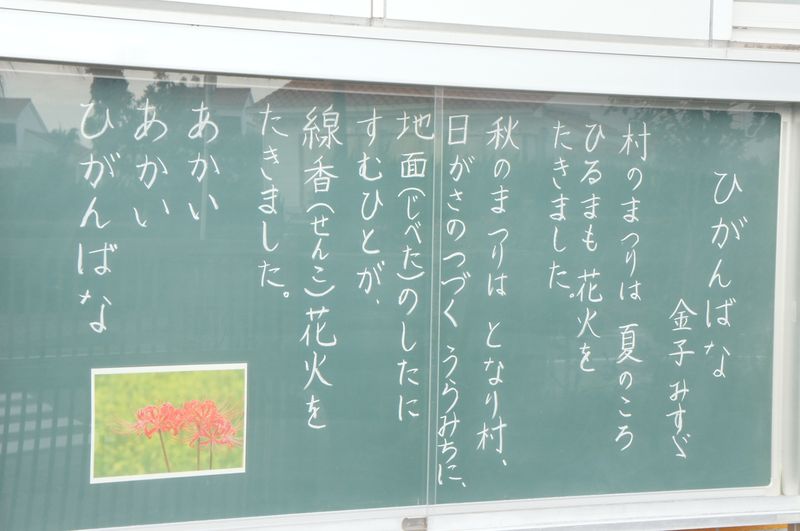 ひがんばな
金子 みすゞ
村のまつりは 夏のころ
ひるまも 花火を
たきました。
秋のまつりは となり村、
日がさのつづく うらみちに、
地面(じべた)のしたに
すむひとが、
線香(せんこ)花火を
たきました。
あかい
あかい
ひがんばな